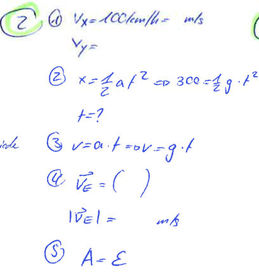 2 ① Vx = 100 km/h = m/s
Vy =
② x = 1/2 a t² ⇒ 300 = 1/2 g · t²
t = ?
③ v = a · t ⇒ v = g · t
④ V⃗E = ( )
|V⃗E| = m/s
⑤ A = E